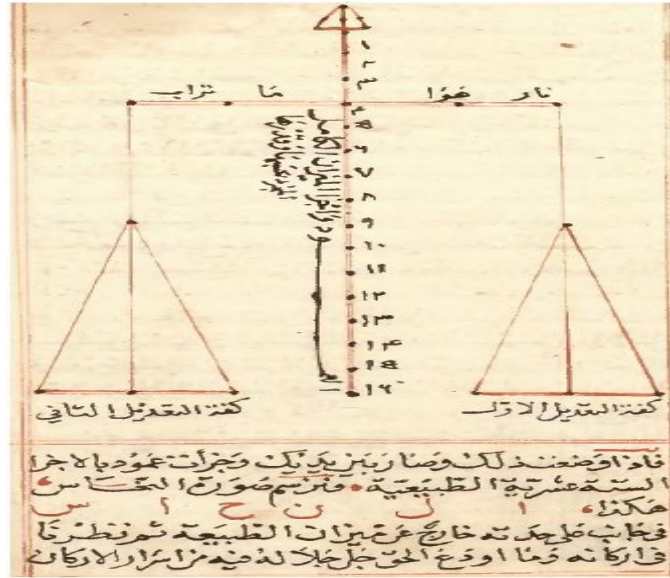 نار
هوا
ما
تراب
٩
١٠
١١
١٢
١٣
١٤
١٥
١٦
كفة التعديل الاول
كفة التعديل الثاني
فاذا وضعت ذلك وصار بين يديك وجزأت عمود بالاجزا
الستة عشرية الطبيعية فترسم صورة النحاس
هكذا ا ل ن ح ا س
في جانب على حدته خارج عن ميزان الطبيعة ثم نظرنا
في اركانه وما اودع الحق جل جلاله فيه من اسرار الاركان